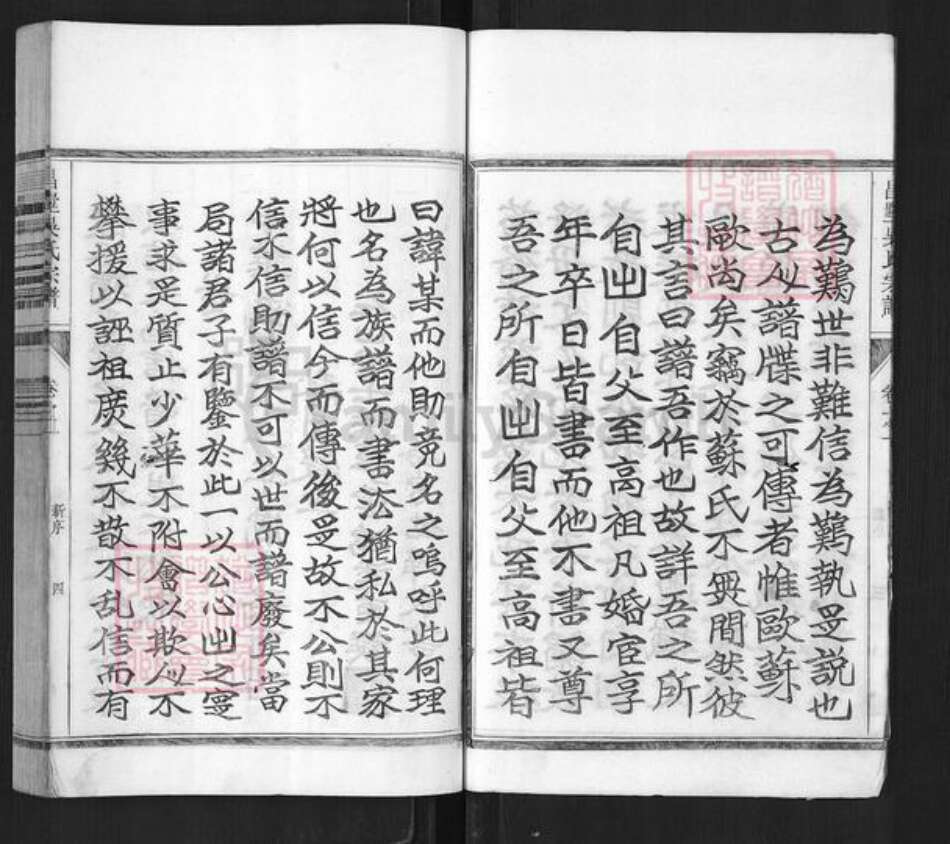 為鷬世非難信為鷬執是説也
古仦譜牒之可傳者惟歐蘇
歐尚矣竊於蘇氏不無間然彼
其言曰譜吾作也故詳吾之所
自出自父至高祖凡婚宦享
年卒日皆書而他不書又尊
吾之所自出自父至高祖皆
曰諱某而他則竟名之嗚呼此何理
也名為族譜而書法猶私於其家
將何以信今而傳後是故不公則不
信不信則譜不可以世而譜廢矣當
局諸君子有鑒於此一以公心出之寔
事求是質止少華不附會以欺仦不
攀援以誣祖庶幾不散不乱信而有
新序
四